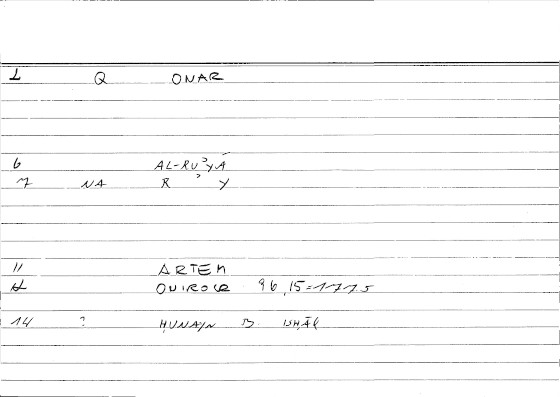 1 Q ONAR
6 AL-RUʾYĀ
7 NA R ʾ Y
11 ARTEM
ONIROCR 96,15=177,5
14 ? ḤUNAYN B. ISḤĀQ